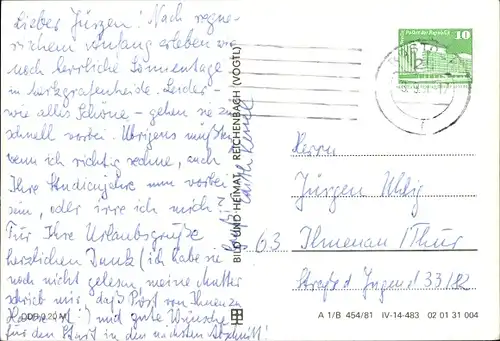 Lieber Jürgen! Nach regne-
rischem Anfang erleben wir
noch herrliche Sonnentage
in Markgrafenheide. Leider -
wie alles Schöne - gehen sie zu
schnell vorbei. Übrigens müßten,
wenn ich richtig rechne, auch
Ihre Studienjahre nun vorbei
sein, oder irre ich mich?
Für Ihre Urlaubsgrüße
herzlichen Dank (ich habe sie
noch nicht gelesen, meine Mutter
schrieb mir, daß Post von Ihnen zu
Hause ist!) und gute Wünsche
für den Start in den nächsten Abschnitt!
DDR 0,20 M
BILD UND HEIMAT REICHENBACH (VOGTL)
Palast der Republik
10
DDR
Herrn
Jürgen Uhlig
63 Ilmenau/Thür
Straße d. Jugend 33/82
A 1/B 454/81 IV-14-483 02 01 31 004